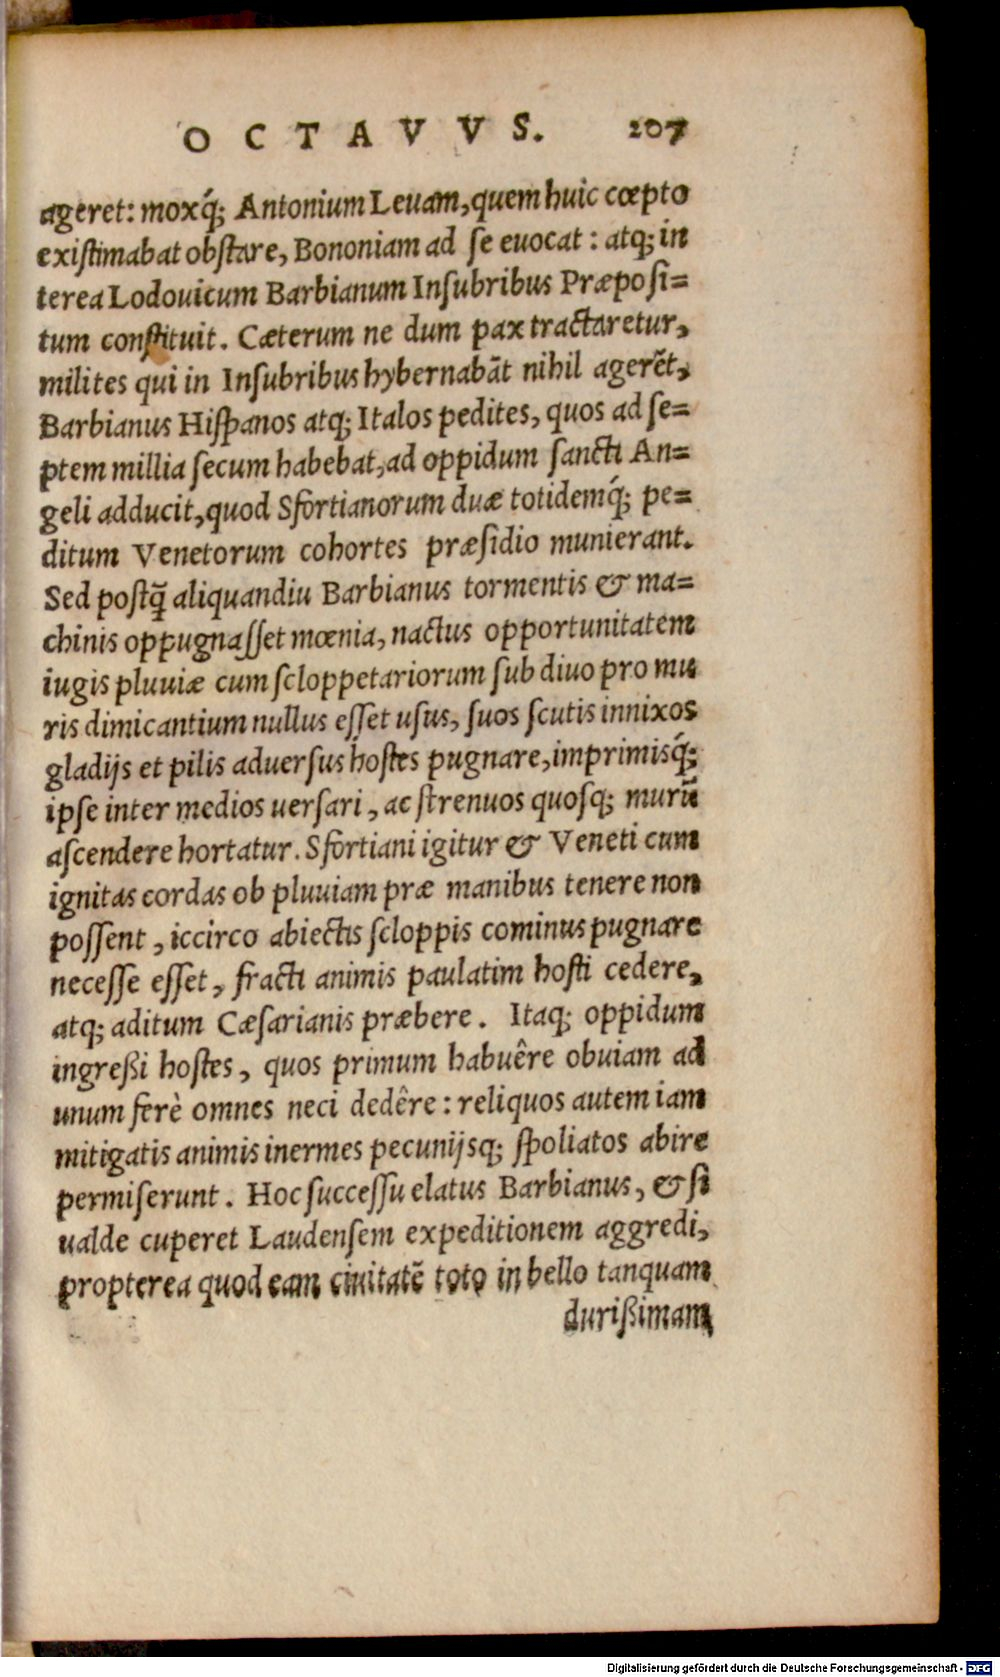 OCTAVVS. 207
ageret: moxq́; Antonium Leuam, quem huic cœpto
existimabat obstare, Bononiam ad se euocat: atq; in
terea Lodouicum Barbianum Insubribus Præposi=
tum constituit. Cæterum ne dum pax tractaretur,
milites qui in Insubribus hybernabāt nihil agerēt,
Barbianus Hispanos atq; Italos pedites, quos ad se=
ptem millia secum habebat, ad oppidum sancti An=
geli adducit, quod Sfortianorum duæ totidemq́; pe=
ditum Venetorum cohortes præsidio munierant.
Sed postq̄ aliquandiu Barbianus tormentis & ma=
chinis oppugnasset mœnia, nactus opportunitatem
iugis pluuiæ cum scloppetariorum sub diuo pro mu
ris dimicantium nullus esset usus, suos scutis innixos
gladijs et pilis aduersus hostes pugnare, imprimisq́;
ipse inter medios uersari, ac strenuos quosq; murū
ascendere hortatur. Sfortiani igitur & Veneti cum
ignitas cordas ob pluuiam præ manibus tenere non
possent, iccirco abiectis scloppis cominus pugnare
necesse esset, fracti animis paulatim hosti cedere,
atq; aditum Cæsarianis præbere. Itaq; oppidum
ingreßi hostes, quos primum habuêre obuiam ad
unum ferè omnes neci dedêre: reliquos autem iam
mitigatis animis inermes pecunijsq; spoliatos abire
permiserunt. Hoc successu elatus Barbianus, & si
ualde cuperet Laudensem expeditionem aggredi,
propterea quod eam ciuitatē toto in bello tanquam
durißimam
Digitalisierung gefördert durch die Deutsche Forschungsgemeinschaft - DFG